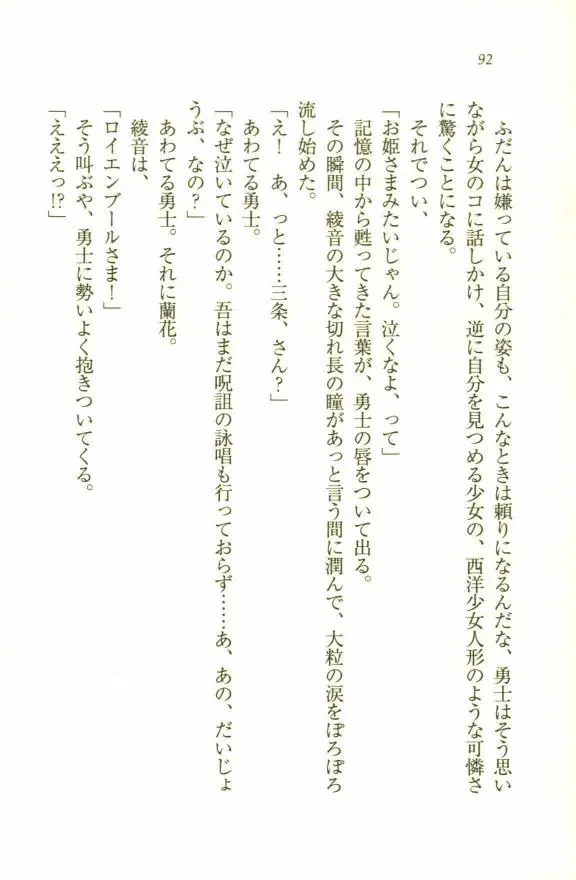 92
ふだんは嫌っている自分の姿も、こんなときは頼りになるんだな、勇士はそう思い
ながら女のコに話しかけ、逆に自分を見つめる少女の、西洋少女人形のような可憐さ
に驚くことになる。
それでつい、
「お姫さまみたいじゃん。泣くなよ、って」
記憶の中から甦ってきた言葉が、勇士の唇をついて出る。
その瞬間、綾音の大きな切れ長の瞳があっと言う間に潤んで、大粒の涙をぽろぽろ
流し始めた。
「え！　あ、っと……三条、さん？」
あわてる勇士。
「なぜ泣いているのか。吾はまだ呪詛の詠唱も行っておらず……あ、あの、だいじょ
うぶ、なの？」
あわてる勇士。それに蘭花。
綾音は、
「ロイエンブールさま！」
そう叫ぶや、勇士に勢いよく抱きついてくる。
「えええっ!?」